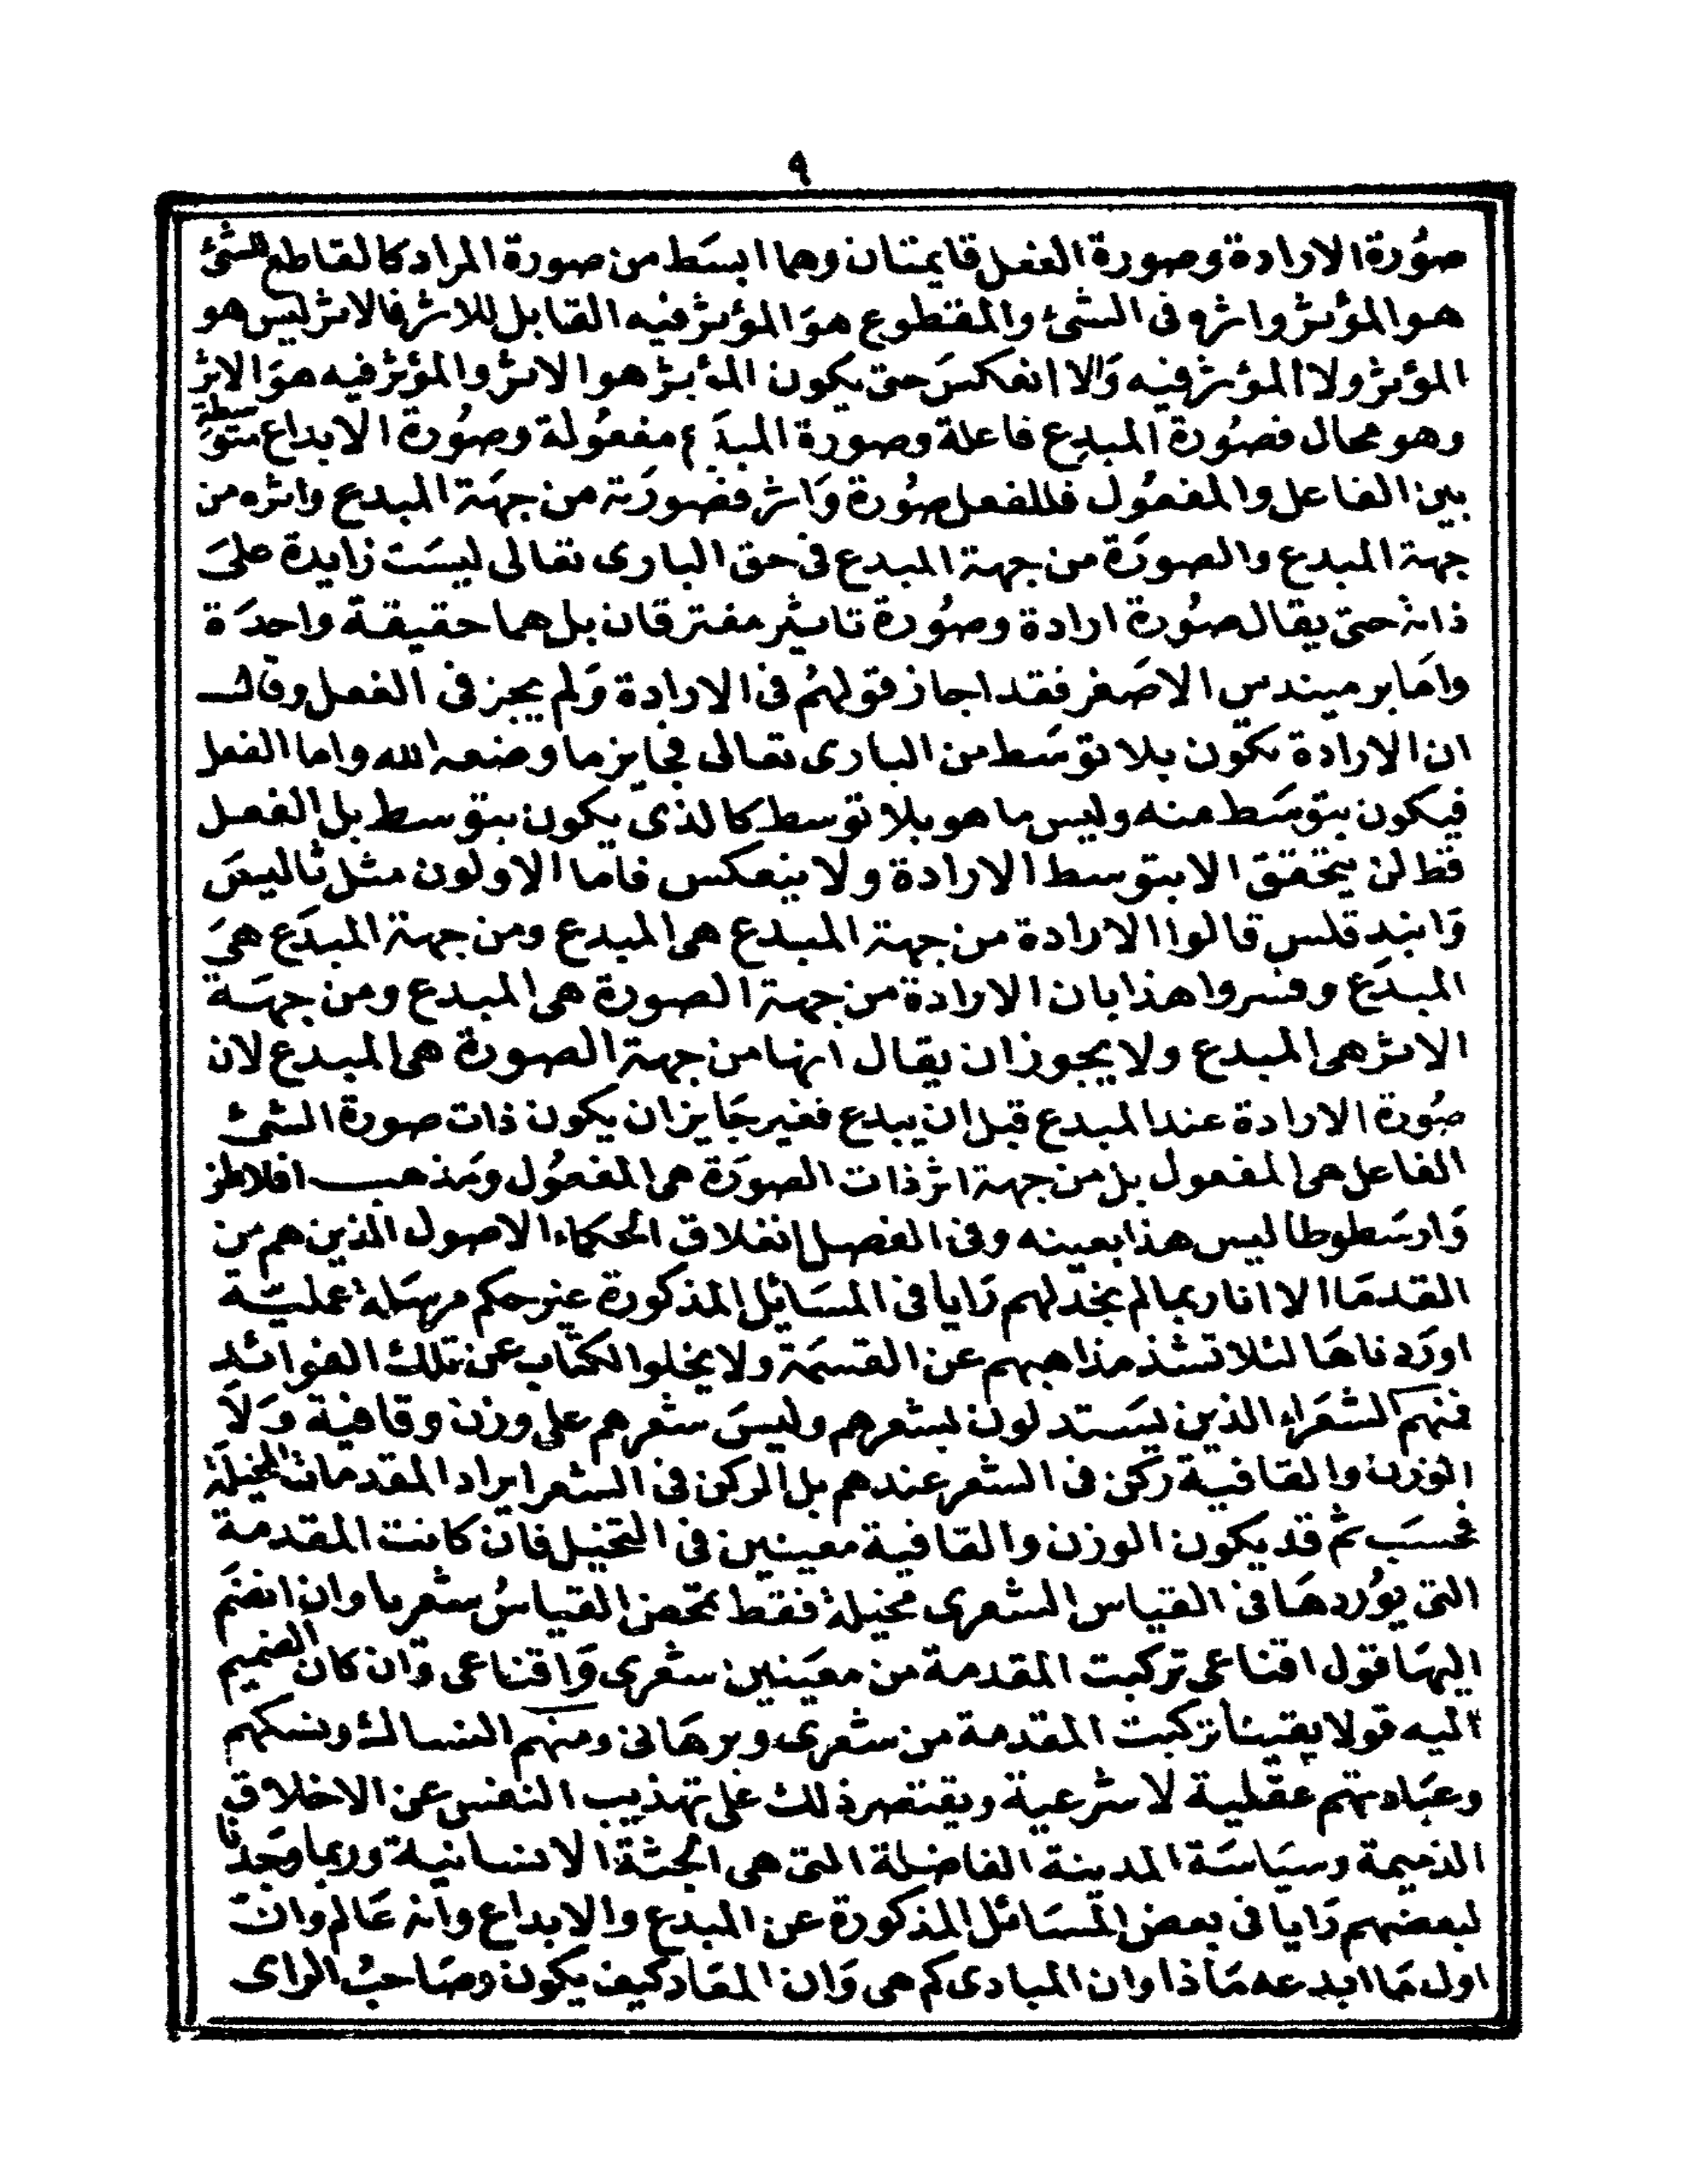 ٩
صُورة الارادة وصورة الفعل قايمتان وهما ابسَط من صورة المراد كالقاطع للشئ
هو المؤثر واثره فى الشئ والمقطوع هوَ المؤثر فيه القابل للاثر فالاثر ليس هو
المؤثر ولا المؤثر فيه وَالا انعكسَ حتى يكون المؤثر هو الاثر والمؤثر فيه هوَ الاثر
وهو محال فصُورة المبدِع فاعلة وصورة المبدَع مفعُولة وصُورة الابداع متوَسطة
بين الفاعل والمفعُول فللفعل صُورة وَاثر فصُورَته من جهَة المبدع واثره من
جهة المبدع والصورَة من جهة المبدع فى حق البارى تعالى ليسَت زايدة علىَ
ذاته حتى يقال صُورة ارادة وصُورة تاثير مفترقان بل هما حقيقة واحدَة
وامَا برميندس الاصَغر فقد اجاز قولهُم فى الارادة وَلم يجز فى الفعل وقال
ان الارادة تكون بلا توسَط من البارى تعالى فجايز ما وضعه الله واما الفعل
فيكون بتوسَط منه وليس ما هو بلا توسط كالذى يكون بتوسط بل الفعل
قط لن يتحققَ الا بتوسط الارادة ولا ينعكس فاما الاولون مثل ثاليسَ
وَانبدقلس قالوا الارادة من جهة المبدع هى المبدع ومن جهة المبدَع هىَ
المبدَع وفسروا هذا بان الارادة من جهة الصورة هى المبدع ومن جهَة
الاثر هى المبدع ولا يجوز ان يقال انها من جهة الصورة هى المبدع لان
صُورة الارادة عند المبدع قبل ان يبدع فغير جَايز ان يكون ذات صورة الشئ
الفاعل هى المفعول بل من جهة اثر ذات الصورَة هى المفعُول ومَذهب افلاطن
وَارسَطوطاليس هذا بعينه وفى الفصل انغلاق الحكماء الاصول الذين هم من
القدمَاا الا انا ربما لم نجد لهم رَايا فى المسَائل المذكورة غير حكم مرسَلة عملية
اورَدناهَا لئلا تشذ مذاهبهم عن القسمَة ولا يخلوا الكتاب عن تلك الفوائد
فمنهم الشعَراء الذين يسَتدلون بشعرهم وليسَ شعرهم على وزن وقافية وَلَا
الوزن والقافية ركن فى الشعر عندهم بل الركن فى الشعر ايراد المقدمات المخيلَة
فحسَب ثم قد يكون الوزن والقافية معينين فى التخيل فان كانت المقدمة
التى يوُردهَا فى القياس الشعرى مخيلة فقط تمحض القياسُ شعريا وان انضمَ
اليهَا قول اقناعى تركبت المقدمة من معيَنين شعرى وَاقناعى وان كان الضميم
اليه قولا يقينا تركبت المقدمة من شعرى وبرهَانى ومنهم النساك ونسكهم
وعبَادتهم عقلية لا شرعية ويقتصر ذلك على تهذيب النفس عن الاخلاق
الذميمة وسيَاسَة المدينة الفاضلة التى هى الجثة الانسانية وربما وَجدنا
لبعضهم رَايا فى بعض المسَائل المذكورة عن المبدع والابداع وانه عَالم وان
اول مَا ابدعه مَاذا وان المبادى كم هى وَان المعَاد كيف يكون وصَاحبُ الراى